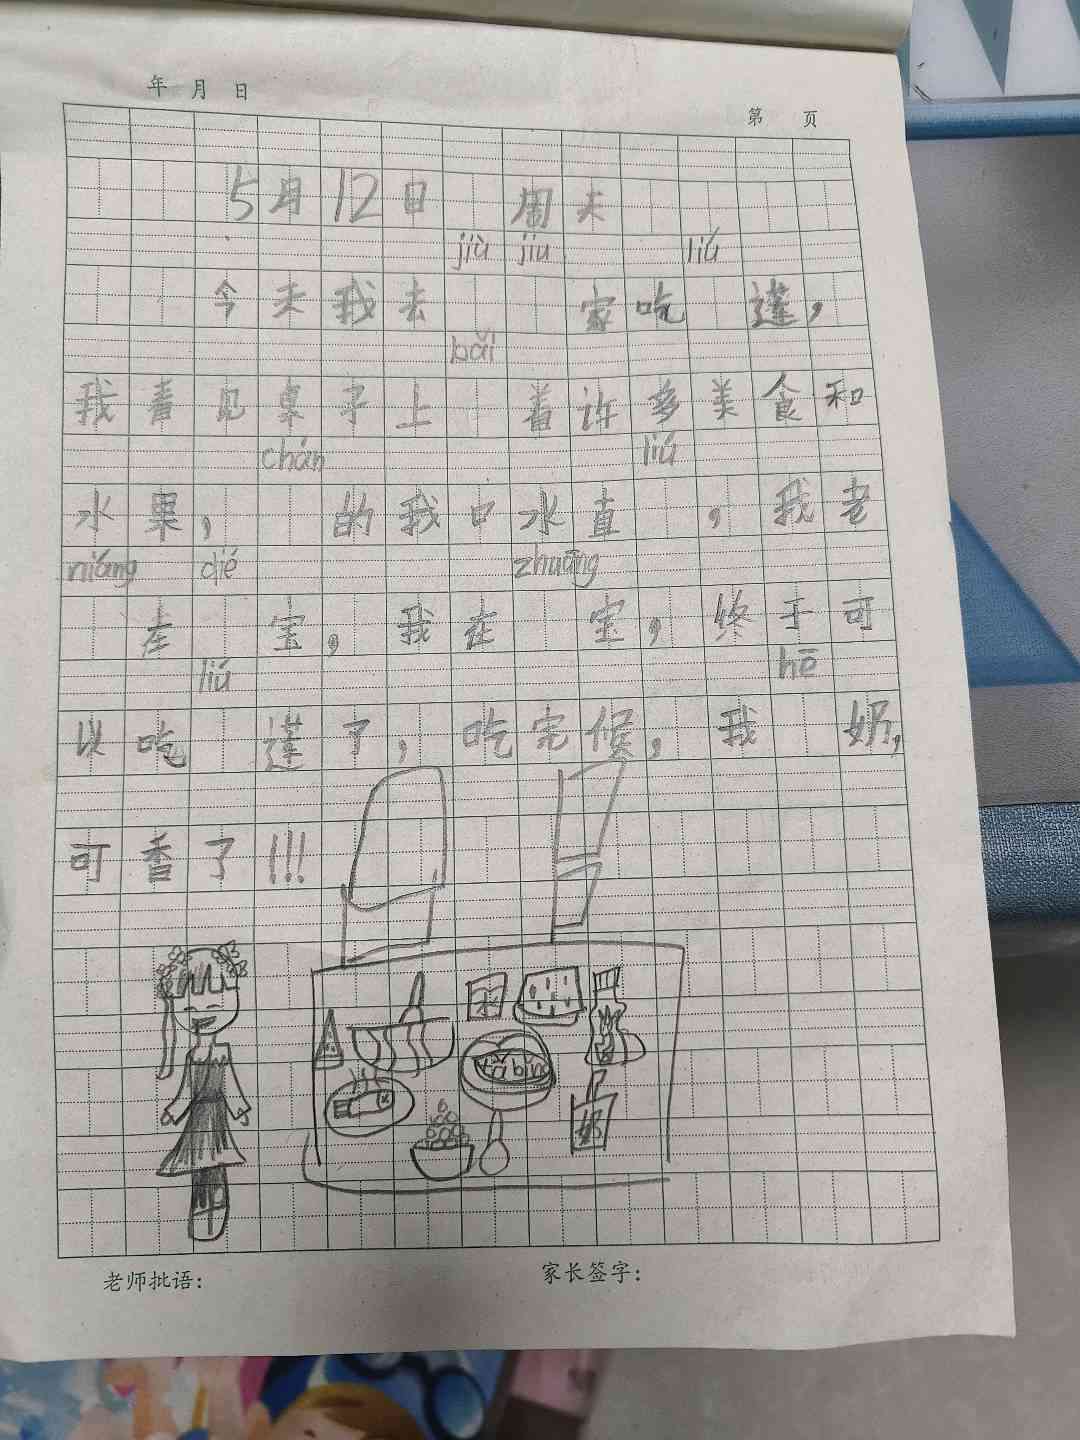 年 月 日
第 页
5月12日 周末
jiù jiu liú
今天我去 家吃 莲，
bǎi
我看见桌子上 着许多美食和
chán liú
水果， 的我口水直 ，我老
niáng dié zhuāng
在 宝，我在 宝，终于可
liú hē
以吃 莲了，吃完候，我 奶，
可香了!!!
水
tǔ bǐng
奶
老师批语：
家长签字：